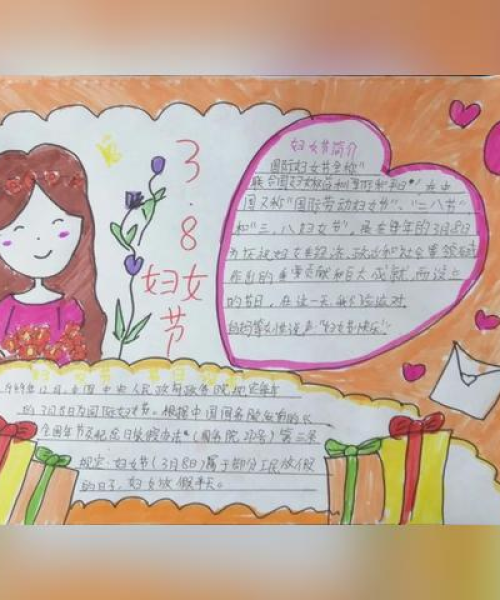 3.8
妇女节
妇女节简介
国际妇女节全称"
联合国妇女权益和国际和平日"在中
国又称"国际劳动妇女节"、"三八节"
和"三.八妇女节",是在每年的3月8日
为庆祝妇女在经济、政治和社会等领域
作出的重要贡献和巨大成就,而设立
的节日,在这一天,我们应该对
妇女快乐"
1949年12月,中国中央人民政府政务院规定每年
的3月8日为国际妇女节。根据中国国务院发布的《
全国年节及纪念日放假办法》(国务院270号)第三条
规定.妇女节(3月8日)属于部分公民放假
的日子,妇女放假半天。